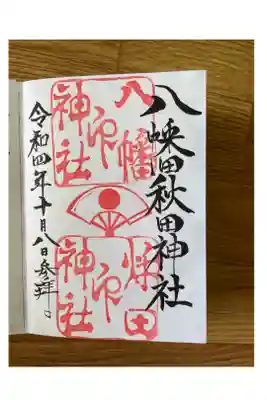 八幡秋田神社
八幡
神社印
秋田
神社印
令和四年十月八日参拝